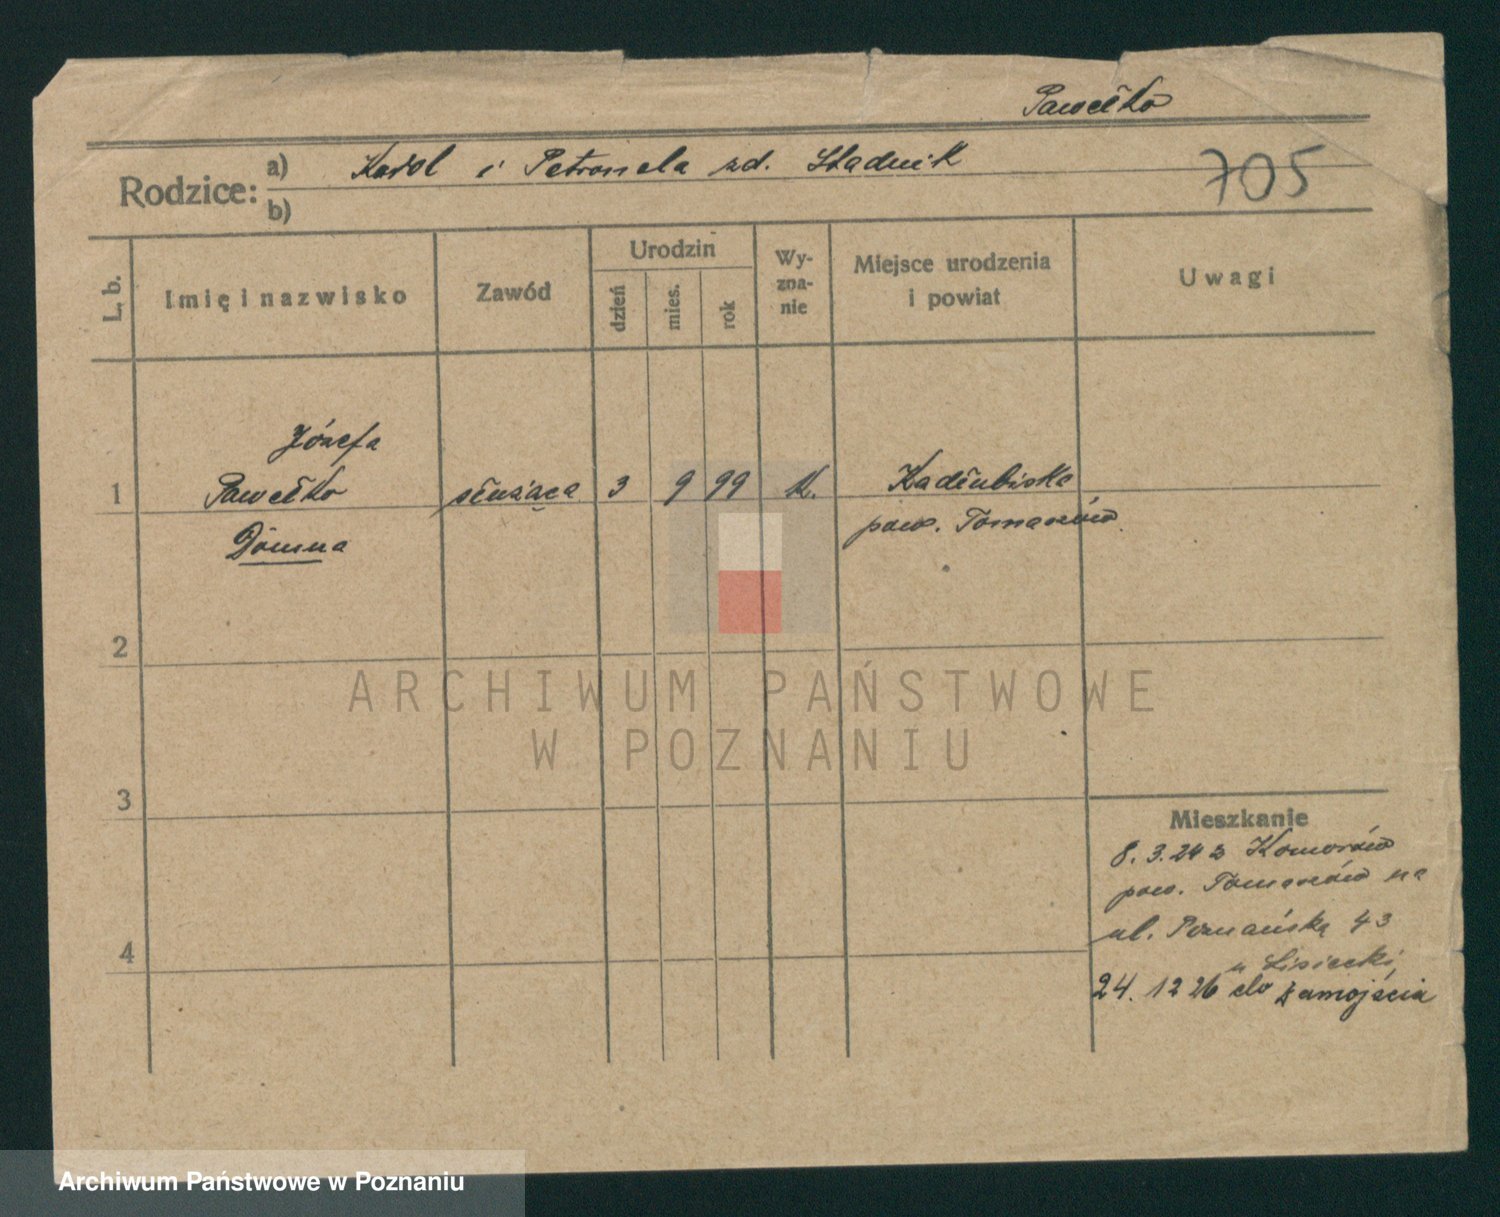 Pawełko
Rodzice: a) Karol i Petronela zd. Stadnik
b)
705
L. b.
Imię i nazwisko
Zawód
Urodzin
dzień
mies.
rok
Wy-
zna-
nie
Miejsce urodzenia
i powiat
Uwagi
Józefa
1 Pawełko służąca 3 9 99 K. Kadłubiska
Domna pow. Tomaszów
2
3
4
Mieszkanie
8. 3. 24 z Komorów
pow. Tomaszów na
ul. Poznańską 43
u Lisiecki
24. 12 26 do Zamojścia
ARCHIWUM PAŃSTWOWE
W POZNANIU
Archiwum Państwowe w Poznaniu